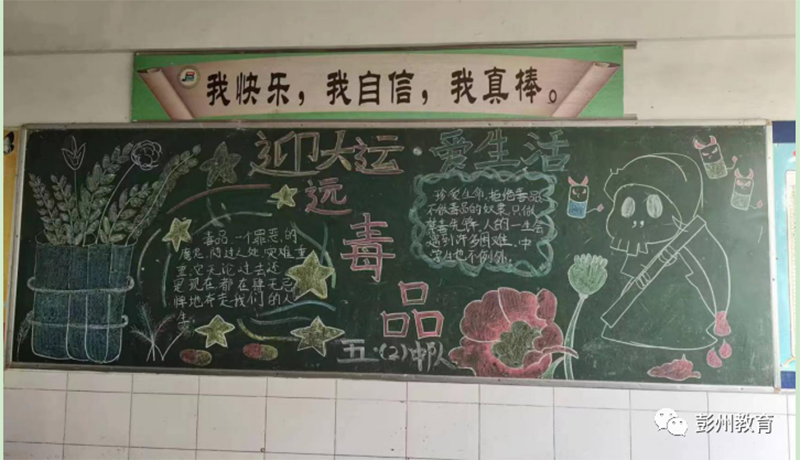 我快乐，我自信，我真棒。
迎大运·爱生活
远
毒
品
毒品,一个罪恶的
魔鬼,所过之处,灾难重
重,它无论过去还
是现在都在肆无忌
惮地夺走我们的人
生。
珍爱生命,拒绝毒品
不做毒品的奴隶,只做
禁毒先锋,人的一生会
遇到许多困难,中
学生也不例外。
五·(2)中队
彭州教育